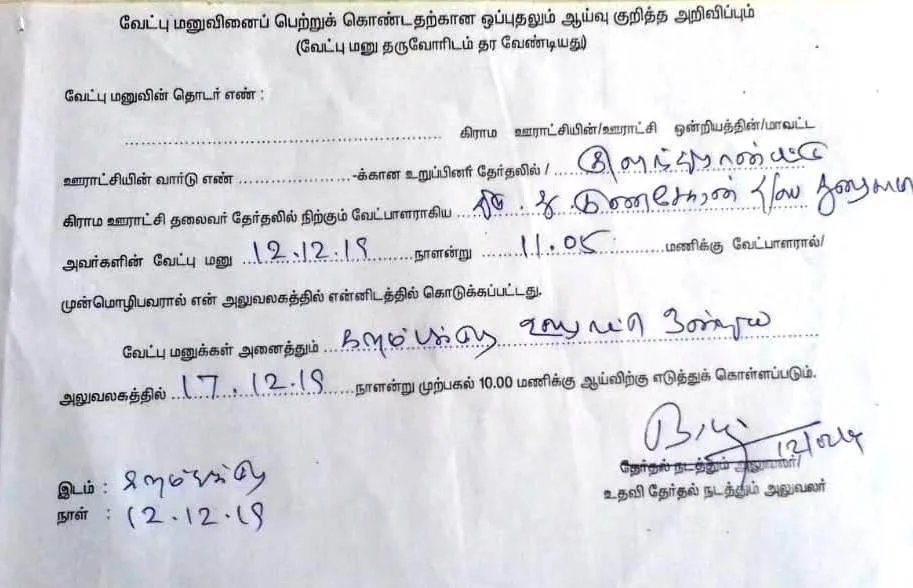 வேட்பு மனுவினைப் பெற்றுக் கொண்டதற்கான ஒப்புதலும் ஆய்வு குறித்த அறிவிப்பும்
(வேட்பு மனு தருவோரிடம் தர வேண்டியது)
வேட்பு மனுவின் தொடர் எண் :
கிராம ஊராட்சியின்/ஊராட்சி ஒன்றியத்தின்/மாவட்ட
ஊராட்சியின் வார்டு எண் ....................-க்கான உறுப்பினர் தேர்தலில் /
கிராம ஊராட்சி தலைவர் தேர்தலில் நிற்கும் வேட்பாளராகிய
அவர்களின் வேட்பு மனு 12.12.19 நாளன்று 11.05 மணிக்கு வேட்பாளரால்/
முன்மொழிபவரால் என் அலுவலகத்தில் என்னிடத்தில் கொடுக்கப்பட்டது.
வேட்பு மனுக்கள் அனைத்தும்
அலுவலகத்தில் 17.12.19 நாளன்று முற்பகல் 10.00 மணிக்கு ஆய்விற்கு எடுத்துக் கொள்ளப்படும்.
தேர்தல் நடத்தும் அலுவலர்/
உதவி தேர்தல் நடத்தும் அலுவலர்
இடம் :
நாள் : 12.12.19